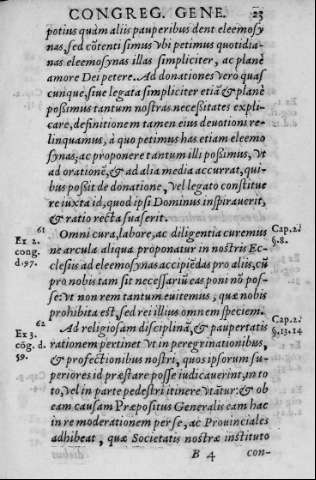 CONGREG. GENE. 23
potius quàm aliis pauperibus dent eleemosy
nas, sed cōtenti simus vbi petimus quotidia-
nas eleemosynas illas simpliciter, ac planè
amore Dei petere. Ad donationes verò quas
cunque, siue legata simpliciter etiā & planè
possimus tantum nostras necessitates expli-
care, definitionem tamen eius deuotioni re-
linquamus, à quo petimus has etiam eleemo
synas; ac proponere tantum illi possimus, vt
ad orationē, & ad alia media accurrat, qui-
bus possit de donatione, vel legato constitue
re iuxta id, quod ipsi Dominus inspirauerit,
& ratio recta suaserit.
61
Omni cura, labore, ac diligentia curemus
Ex 2.
cong.
d.97.
Cap.2.
§.8.
ne arcula aliqua proponatur in nostris Ec-
clesiis ad eleemosynas accipiēdas pro aliis, cū
pro nobis tam sit necessarii eas poni nō pos-
se: vt non rem tantum euitemus, quæ nobis
prohibita est, sed rei illius omnem speciem.
62
Ad religiosam disciplinā, & paupertatis
Ex 3.
cōg. d.
39.
Cap.2.
§.13.14
rationem pertinet vt in peregrinationibus,
& profectionibus nostri, quos ipsorum su-
periores id præstare posse iudicauerint, in to
to, vel in parte pedestri itinere vtātur: & ob
eam causam Præpositus Generalis eam hac
in re moderationem per se, ac Prouinciales
adhibeat, quæ Societatis nostræ instituto
B 4 con-